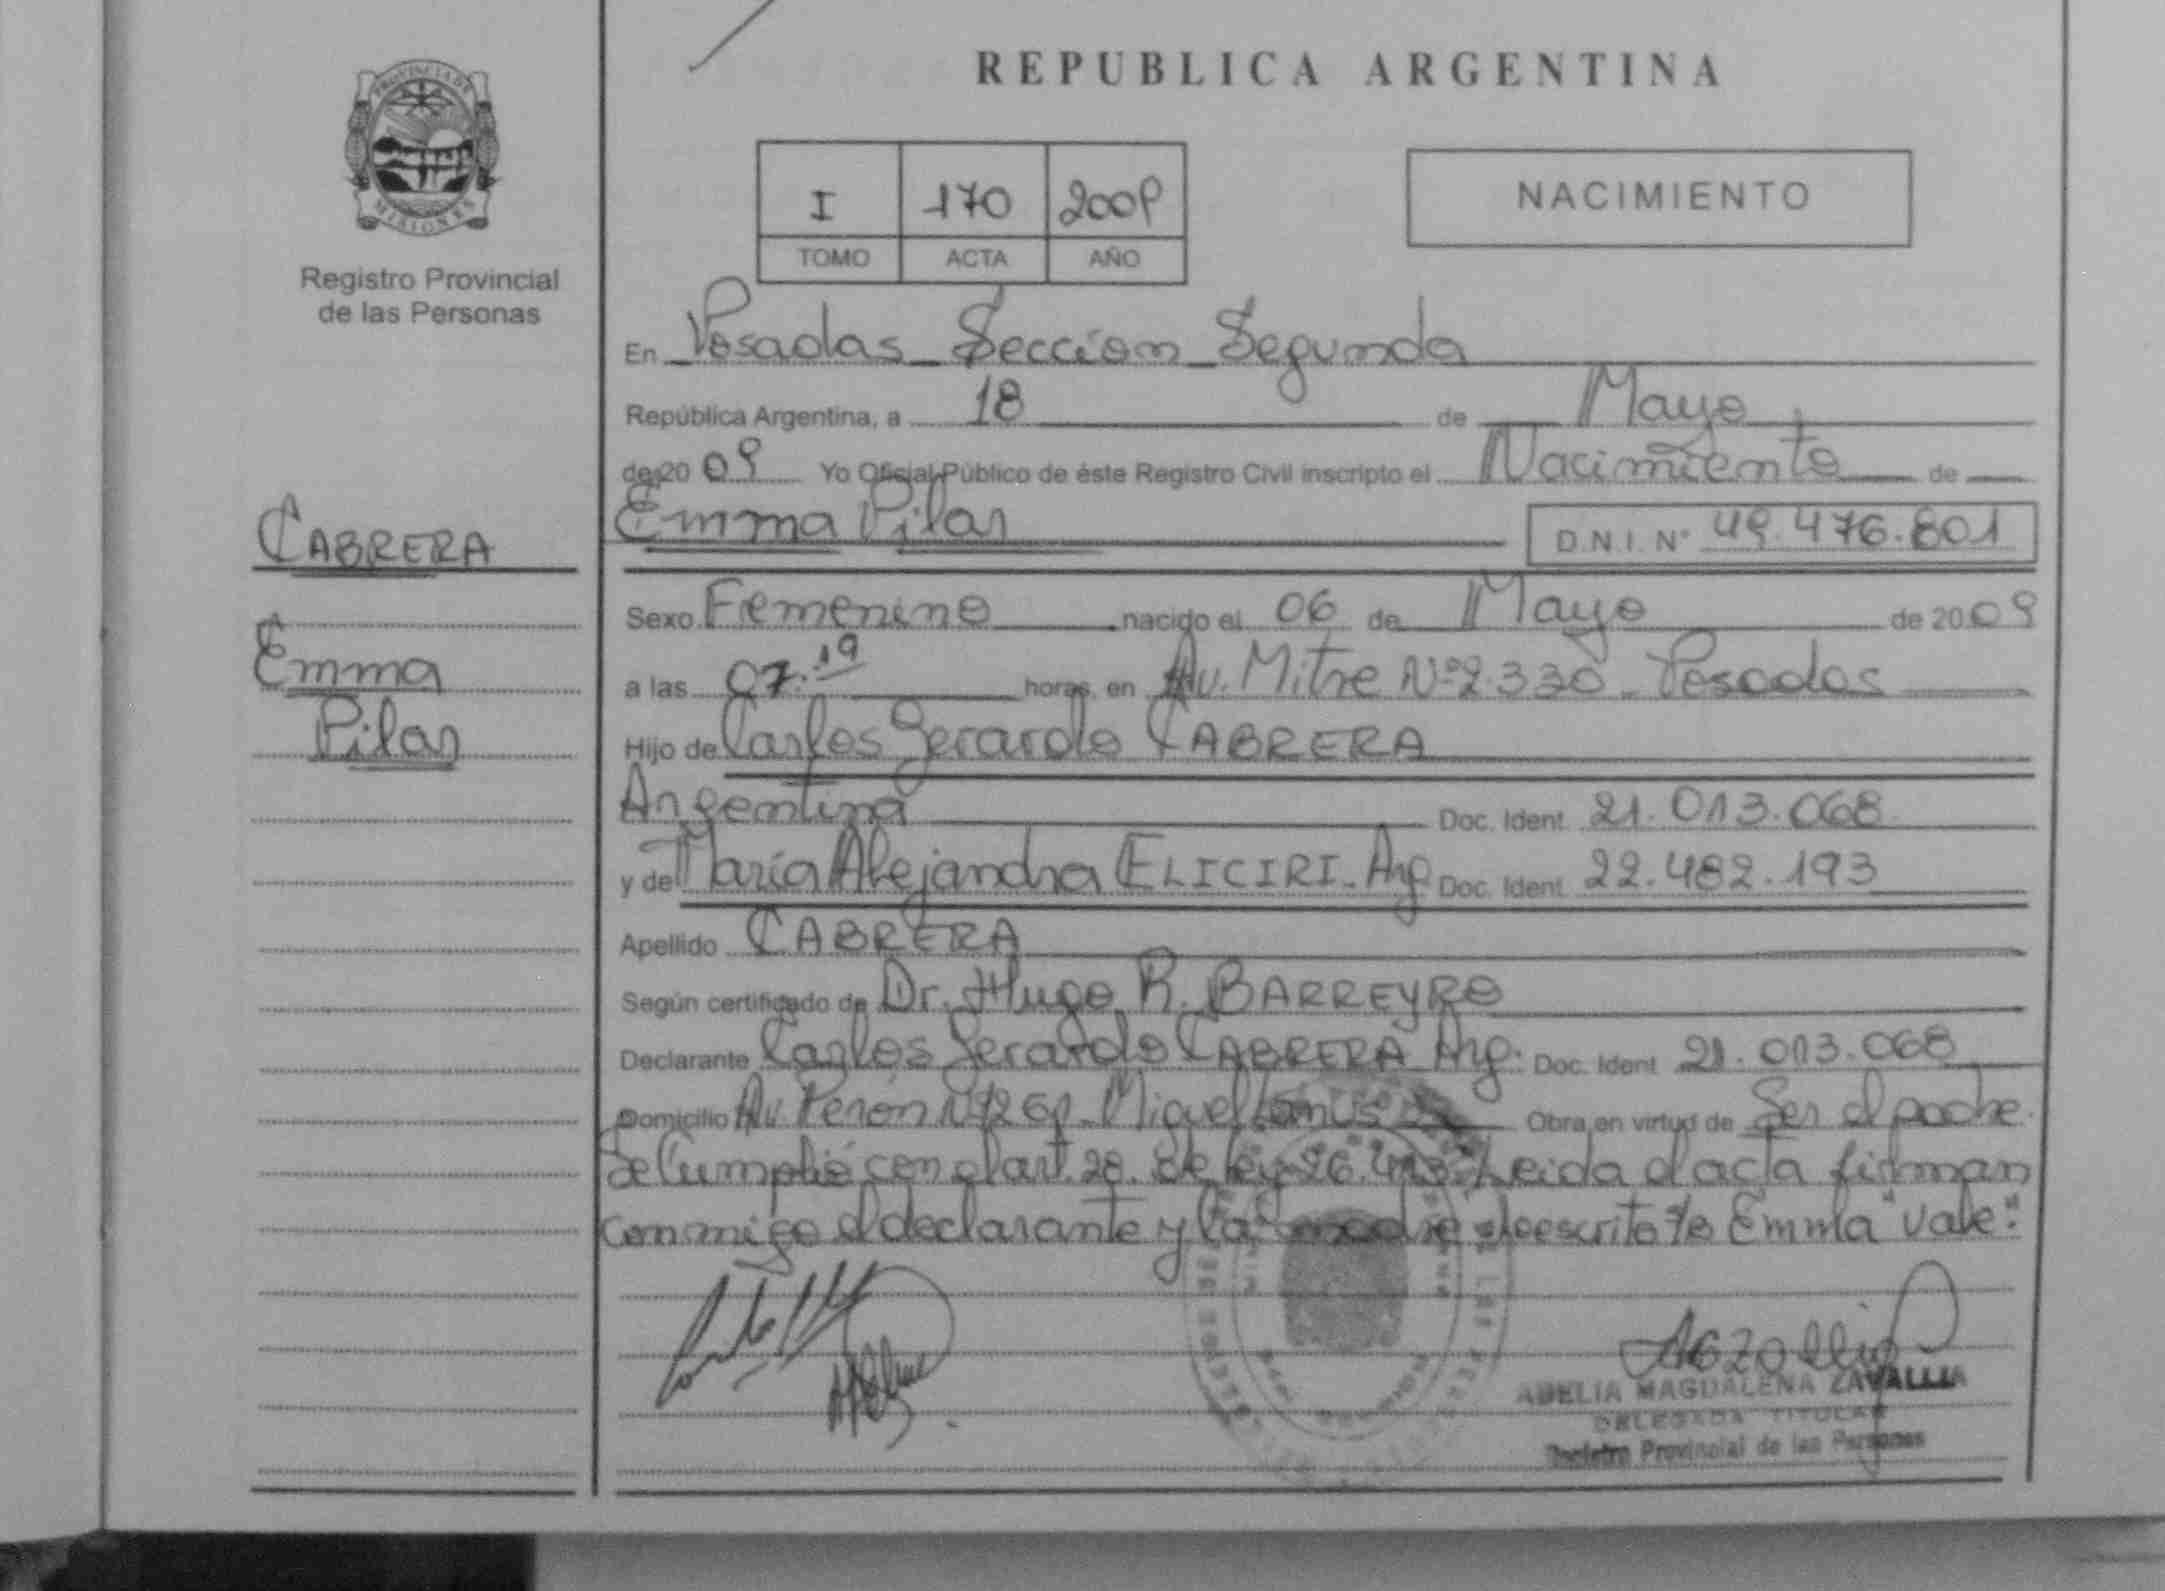 PROVINCIA DE
MISIONES
Registro Provincial
de las Personas
CABRERA
Emma
Pilar
REPUBLICA ARGENTINA
I 170 2009
TOMO ACTA AÑO
NACIMIENTO
En Posadas - Sección - Segunda
República Argentina, a 18 de Mayo
de 20 09 Yo Oficial Público de éste Registro Civil inscripto el Nacimiento de
Emma Pilar D.N.I. Nº 49.476.801
Sexo Femenino nacido el 06 de Mayo de 20 09
a las 07:19 horas, en Av. Mitre Nº 2.330 - Posadas
Hijo de Carlos Gerardo CABRERA
Argentina Doc. Ident. 21.013.068
y de María Alejandra ELICIRI - Arg. Doc. Ident. 22.482.193
Apellido CABRERA
Según certificado de Dr. Hugo R. BARREYRO
Declarante Carlos Gerardo CABRERA Arg. Doc. Ident. 21.013.068
Domicilio Av. Perón Miguel Obra en virtud de Ser el padre.
Se Cumplió con el art. 28. de ley 26.413. Leida el acta firman
conmigo el declarante y la madre Emma "Vale".
ADELIA MAGDALENA ZAVALLIA
DELEGADA TITULAR
Registro Provincial de las Personas